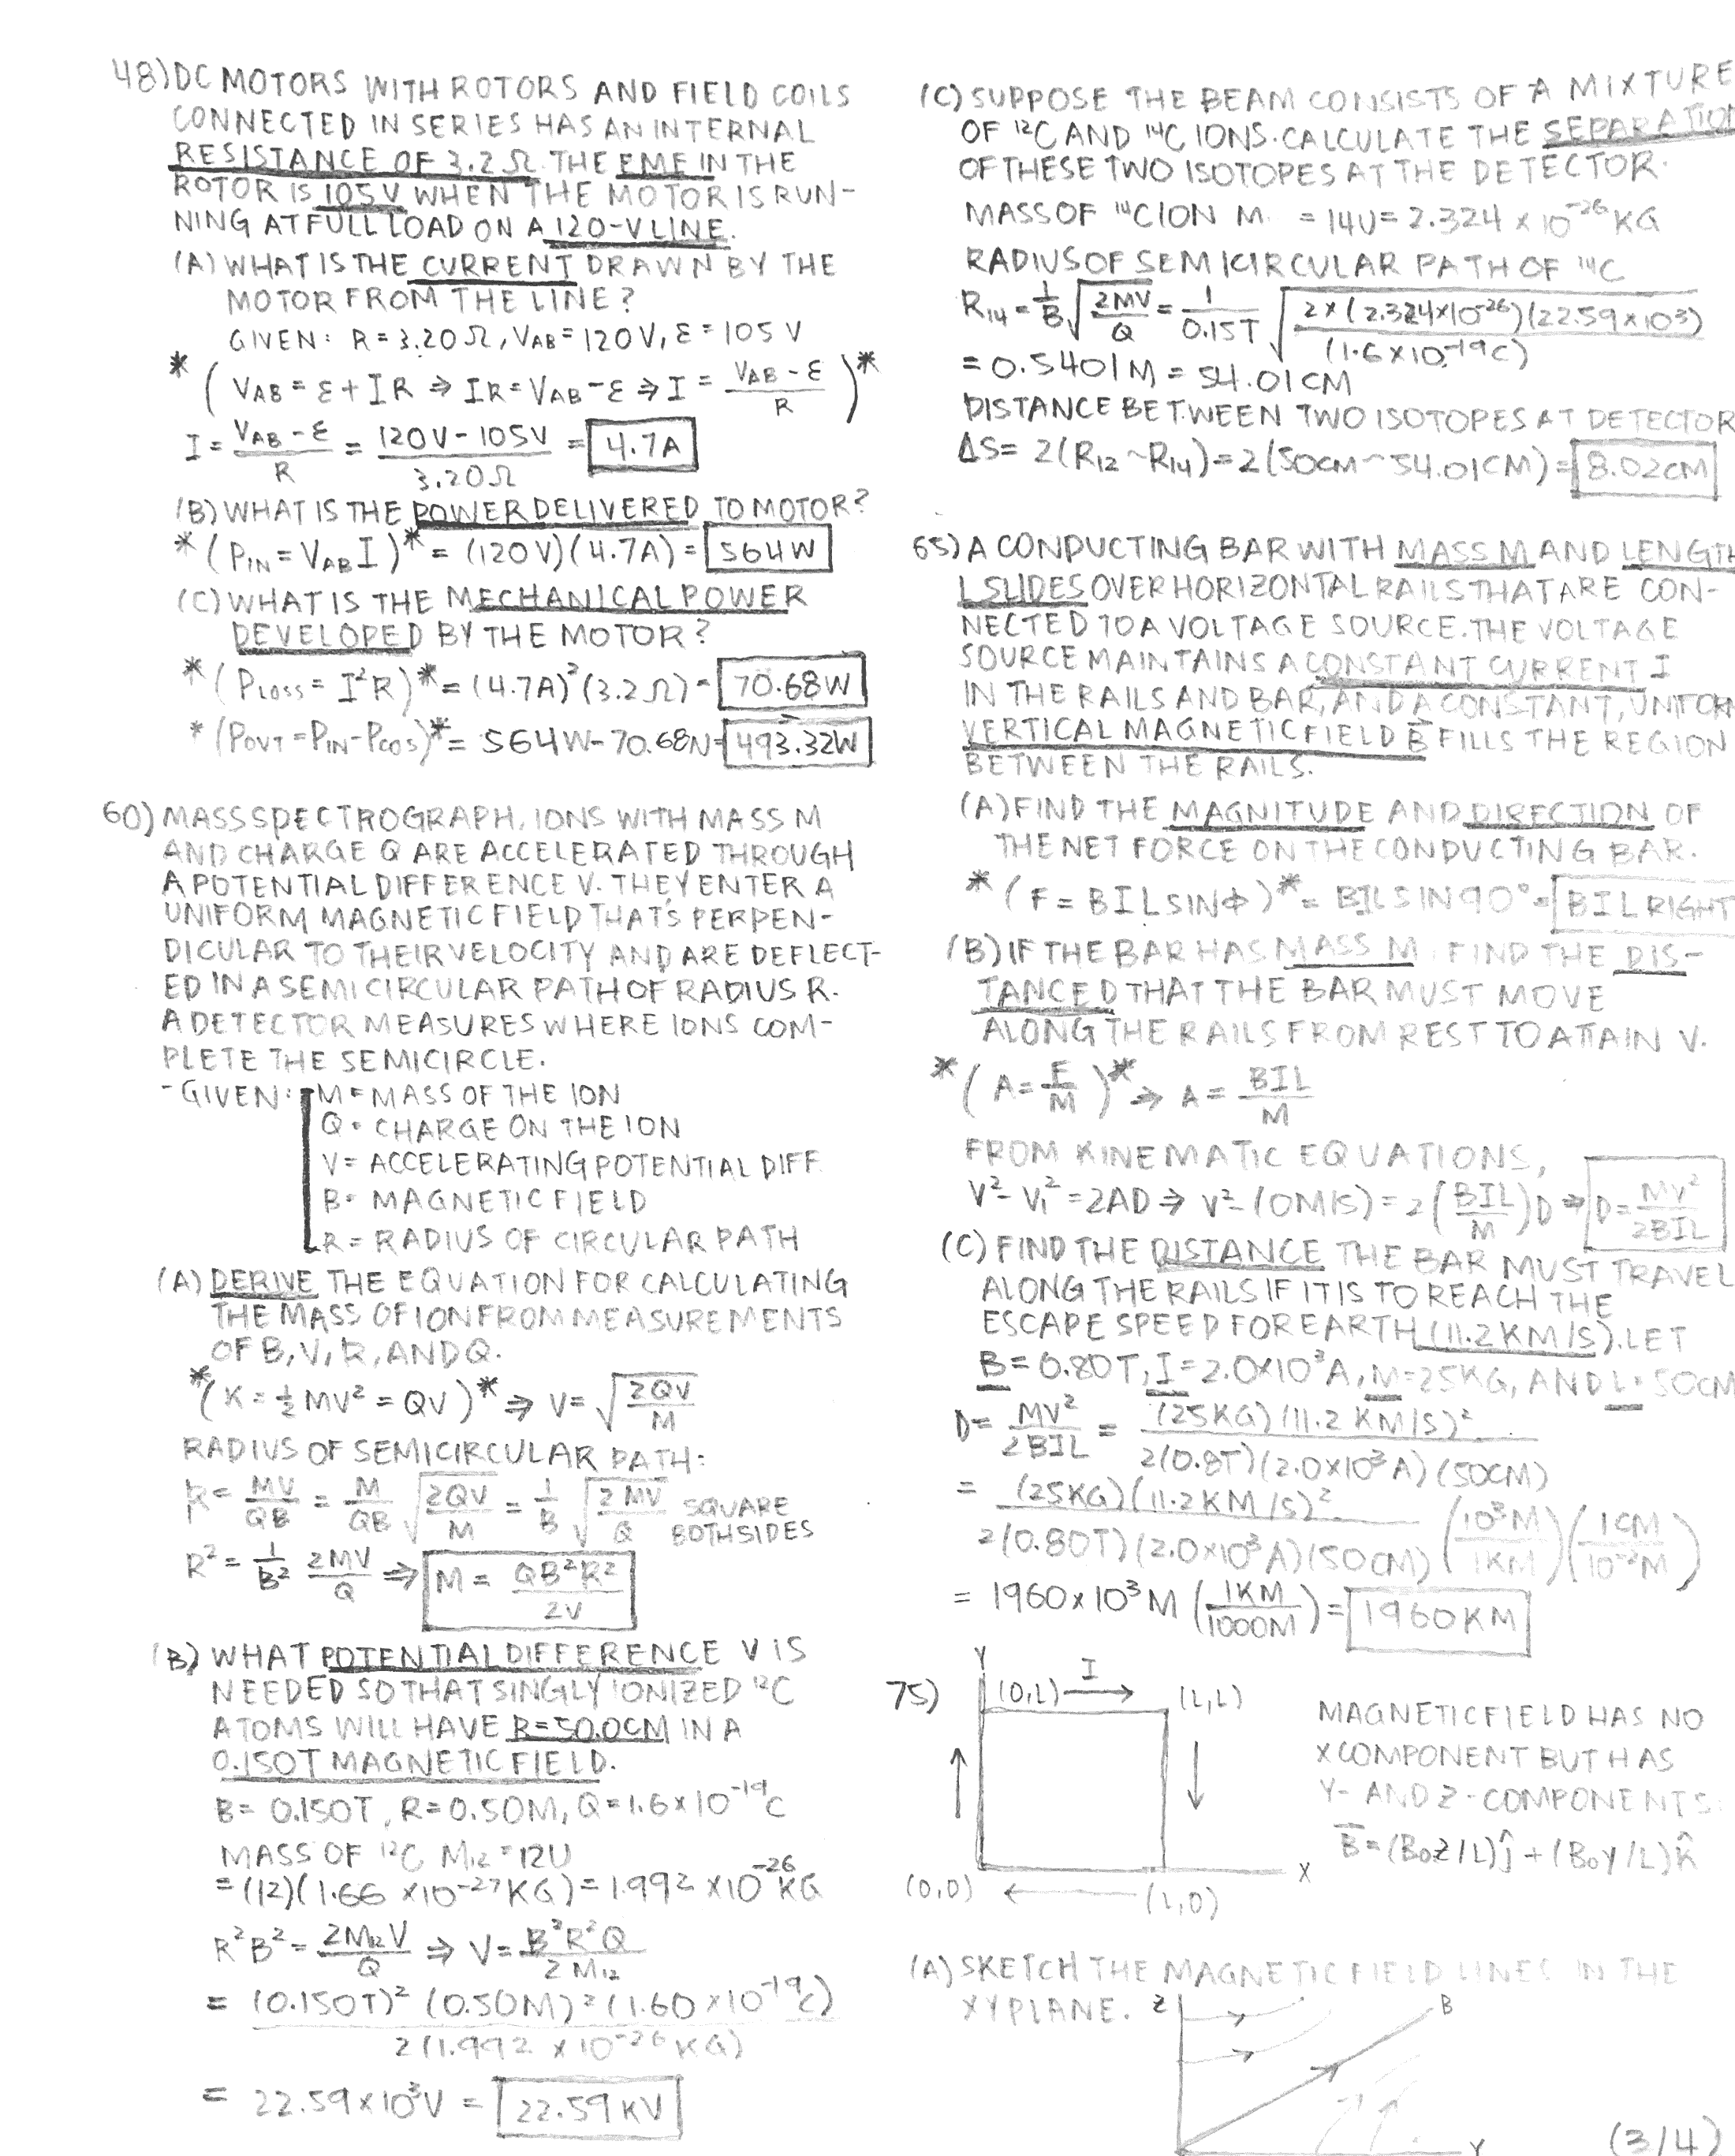 48) DC MOTORS WITH ROTORS AND FIELD COILS
CONNECTED IN SERIES HAS AN INTERNAL
RESISTANCE OF 3.2Ω. THE EMF IN THE
ROTOR IS 105V WHEN THE MOTOR IS RUN-
NING AT FULL LOAD ON A 120-V LINE.
(A) WHAT IS THE CURRENT DRAWN BY THE
MOTOR FROM THE LINE?
GIVEN: R = 3.20Ω, VAB = 120V, Ɛ = 105 V
*(VAB = Ɛ + IR ⇒ IR = VAB - Ɛ ⇒ I = (VAB - Ɛ)/R)*
I = (VAB - Ɛ)/R = (120V - 105V)/3.20Ω = 4.7A
(B) WHAT IS THE POWER DELIVERED TO MOTOR?
*(PIN = VAB I)* = (120V)(4.7A) = 564W
(C) WHAT IS THE MECHANICAL POWER
DEVELOPED BY THE MOTOR?
*(PLOSS = I²R)* = (4.7A)²(3.2Ω) = 70.68W
*(POUT = PIN - PCOS)* = 564W - 70.68W = 493.32W
60) MASS SPECTROGRAPH, IONS WITH MASS M
AND CHARGE Q ARE ACCELERATED THROUGH
A POTENTIAL DIFFERENCE V. THEY ENTER A
UNIFORM MAGNETIC FIELD THAT'S PERPEN-
DICULAR TO THEIR VELOCITY AND ARE DEFLECT-
ED IN A SEMICIRCULAR PATH OF RADIUS R.
A DETECTOR MEASURES WHERE IONS COM-
PLETE THE SEMICIRCLE.
- GIVEN: M = MASS OF THE ION
Q = CHARGE ON THE ION
V = ACCELERATING POTENTIAL DIFF.
B = MAGNETIC FIELD
R = RADIUS OF CIRCULAR PATH
(A) DERIVE THE EQUATION FOR CALCULATING
THE MASS OF ION FROM MEASUREMENTS
OF B, V, R, AND Q.
*(K = ½MV² = QV)* ⇒ V = √(2QV/M)
RADIUS OF SEMICIRCULAR PATH:
R = MV/QB = M/QB √(2QV/M) = 1/B √(2MV/Q) SQUARE
BOTH SIDES
R² = 1/B² 2MV/Q ⇒ M = QB²R²/2V
(B) WHAT POTENTIAL DIFFERENCE V IS
NEEDED SO THAT SINGLY IONIZED ¹²C
ATOMS WILL HAVE R = 50.0CM IN A
0.150T MAGNETIC FIELD.
B = 0.150T, R = 0.50M, Q = 1.6 × 10⁻¹⁹C
MASS OF ¹²C M12 = 12U
= (12)(1.66 × 10⁻²⁷KG) = 1.992 × 10⁻²⁶KG
R²B² = 2M12V/Q ⇒ V = B²R²Q/2M12
= (0.150T)² (0.50M)² (1.60 × 10⁻¹⁹C)/2(1.992 × 10⁻²⁶KG)
= 22.59 × 10³V = 22.59 KV
(C) SUPPOSE THE BEAM CONSISTS OF A MIXTURE
OF ¹²C AND ¹⁴C IONS. CALCULATE THE SEPARATION
OF THESE TWO ISOTOPES AT THE DETECTOR.
MASS OF ¹⁴C ION M = 14U = 2.324 × 10⁻²⁶KG
RADIUS OF SEMICIRCULAR PATH OF ¹⁴C
R14 = 1/B √(2MV/Q) = 1/0.15T √(2×(2.324×10⁻²⁶)(22.59×10³)/(1.6×10⁻¹⁹C))
= 0.5401M = 54.01CM
DISTANCE BETWEEN TWO ISOTOPES AT DETECTOR
ΔS = 2(R12 ~ R14) = 2(50CM ~ 54.01CM) = 8.02CM
65) A CONDUCTING BAR WITH MASS M AND LENGTH
L SLIDES OVER HORIZONTAL RAILS THAT ARE CON-
NECTED TO A VOLTAGE SOURCE. THE VOLTAGE
SOURCE MAINTAINS A CONSTANT CURRENT I
IN THE RAILS AND BAR, AND A CONSTANT, UNIFORM
VERTICAL MAGNETIC FIELD B⃗ FILLS THE REGION
BETWEEN THE RAILS.
(A) FIND THE MAGNITUDE AND DIRECTION OF
THE NET FORCE ON THE CONDUCTING BAR.
*(F = BILSINΦ)* = BILSIN90° = BIL RIGHT
(B) IF THE BAR HAS MASS M, FIND THE DIS-
TANCE D THAT THE BAR MUST MOVE
ALONG THE RAILS FROM REST TO ATTAIN V.
*(A = F/M)* ⇒ A = BIL/M
FROM KINEMATIC EQUATIONS,
V² - V1² = 2AD ⇒ V² - (0M/S) = 2(BIL/M)D ⇒ D = MV²/2BIL
(C) FIND THE DISTANCE THE BAR MUST TRAVEL
ALONG THE RAILS IF IT IS TO REACH THE
ESCAPE SPEED FOR EARTH (11.2 KM/S). LET
B = 0.80T, I = 2.0×10³A, M = 25KG, AND L = 50CM
D = MV²/2BIL = (25KG)(11.2 KM/S)²/2(0.8T)(2.0×10³A)(50CM)
= (25KG)(11.2KM/S)²/2(0.80T)(2.0×10³A)(50CM) (10³M/1KM)(1CM/10⁻²M)
= 1960 × 10³M (1KM/1000M) = 1960KM
75) Y (0,L) I → (L,L)
(0,0) ← (L,0) X
MAGNETIC FIELD HAS NO
X COMPONENT BUT HAS
Y- AND Z-COMPONENTS:
B̅ = (B₀Z/L)ĵ + (B₀Y/L)k̂
(A) SKETCH THE MAGNETIC FIELD LINES IN THE
XY PLANE.
Z B
Y
(3/4)